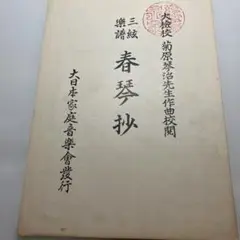 大檢校 菊原琴治先生作曲校閲
三絃
樂譜
春琴抄
大日本家庭音樂會發行